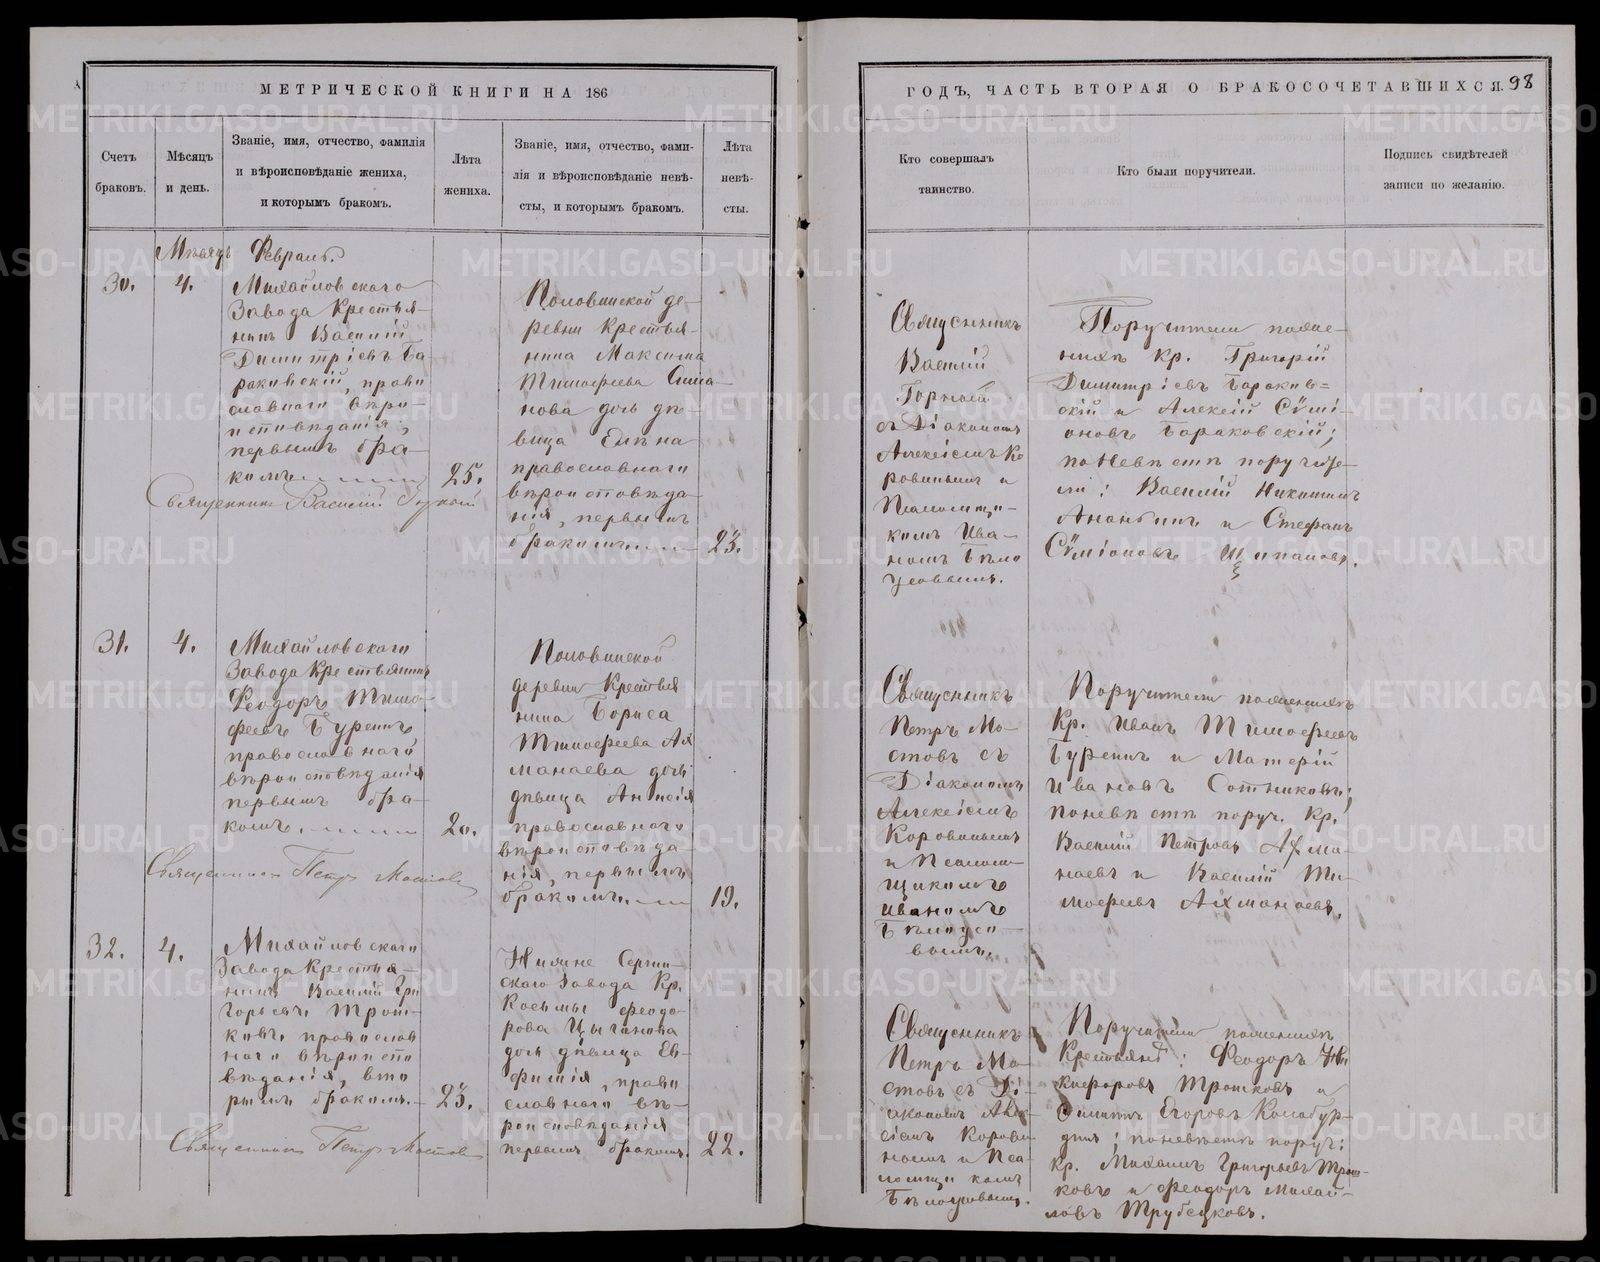 МЕТРИЧЕСКОЙ КНИГИ НА 186
Счетъ
браковъ.
Мѣсяцъ
и день.
Званіе, имя, отчество, фамилія
и вѣроисповѣданіе жениха,
и которымъ бракомъ.
Лѣта
жениха.
Званіе, имя, отчество, фами-
лія и вѣроисповѣданіе невѣ-
сты, и которымъ бракомъ.
Лѣта
невѣ-
сты.
Мѣсяцъ Февраль.
30.
4.
Михайловскаго
Завода Крестья-
нинъ Василій
Димитріевъ Ба-
раковскій, право
славнаго вѣро-
исповѣданія,
первымъ бра-
комъ
25.
Половинской де-
ревни Крестья-
нина Максима
Тимофеева
нова дочь дѣ-
вица Елена
православнаго
вѣроисповѣда-
нія, первымъ
бракомъ
23.
Священникъ Василій
31.
4.
Михайловскаго
Завода Крестьянинъ
Феодоръ Тимо-
феевъ Буренинъ
православнаго
вѣроисповѣданія
первымъ бра-
комъ.
20.
Половинской
деревни Крестья
нина Бориса
Тимофеева Ах
манаева дочь
дѣвица Анисія
православнаго
вѣроисповѣда
нія, первымъ
бракомъ.
19.
Священникъ Петръ Мостовъ
32.
4.
Михайловскаго
Завода Крестья-
нинъ Василій Гри
горьевъ Трош-
ковъ, православ
наго вѣроиспо
вѣданія, вто
рымъ бракомъ.
23.
Нижне Серги-
скаго Завода Кр.
Косьмы Феодо-
рова Цыганова
дочь дѣвица Ев-
фимія, право
славнаго вѣ-
роисповѣданія
первымъ бракомъ.
22.
Священникъ Петръ Мостовъ
ГОДЪ, ЧАСТЬ ВТОРАЯ О БРАКОСОЧЕТАВШИХСЯ.
98
Кто совершалъ
таинство.
Кто были поручители.
Подпись свидѣтелей
записи по желанію.
Священникъ
Василій
съ Діакономъ
Алексіемъ Ко
ровинымъ и
Псаломщи-
комъ Ива-
номъ Бѣло
усовымъ.
Поручители по же-
нихѣ Кр. Григорій
Димитріевъ Бараков-
скій и Алексій Сѵмі-
оновъ Бараковскій;
по невѣстѣ поручите-
ли: Василій Никитинъ
Ананьинъ и Стефанъ
Сѵміоновъ Щипановъ.
Священникъ
Петръ Мо-
стовъ съ
Діакономъ
Алексіемъ
Коровинымъ
и Псалом-
щикомъ
Иваномъ
Бѣлоусо-
вымъ.
Поручители по женихѣ
Кр. Иванъ Тимофеевъ
Буренинъ и Матерій
Ивановъ Сотниковъ;
по невѣстѣ поруч. Кр.
Василій Петровъ Ахма-
наевъ и Василій Ти-
мофеевъ Ахманаевъ.
Священникъ
Петръ Мо-
стовъ съ Ді-
акономъ Алек-
сіемъ Корови-
нымъ и Пса-
ломщикомъ
Бѣлоусовымъ.
Поручители по женихѣ
Крестьяне: Феодоръ Ни
кифоровъ Трошковъ и
Егоровъ Колобур-
динъ; по невѣстѣ поруч:
Кр. Михаилъ Григорьевъ Трош-
ковъ и Феодоръ Михай-
ловъ Трубецковъ.
METRIKI.GASO-URAL.RU